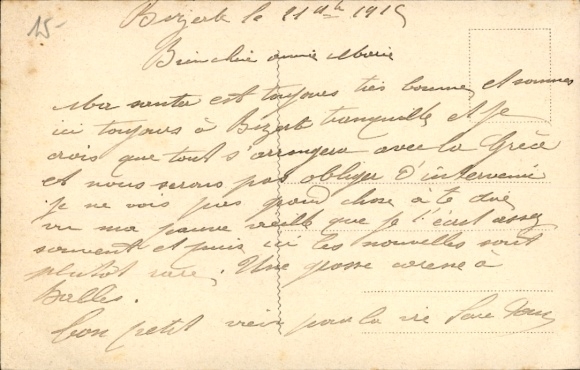 15-
Bizerte le 21 9bre 1915
Bien chère amie Marie
Ma santé est toujours très bonne, et sommes
ici toujours à Bizerte tranquille et je
crois que tout s'arrangera avec la Grèce
et nous serons pas obliger d'intervenir
je ne vois pas grand chose à te dire
vu ma pauvre vieille que je t'écrit assez
souvent et puis ici les nouvelles sont
plutôt rare. Une grosse caresse à
Ton petit vieux pour la vie